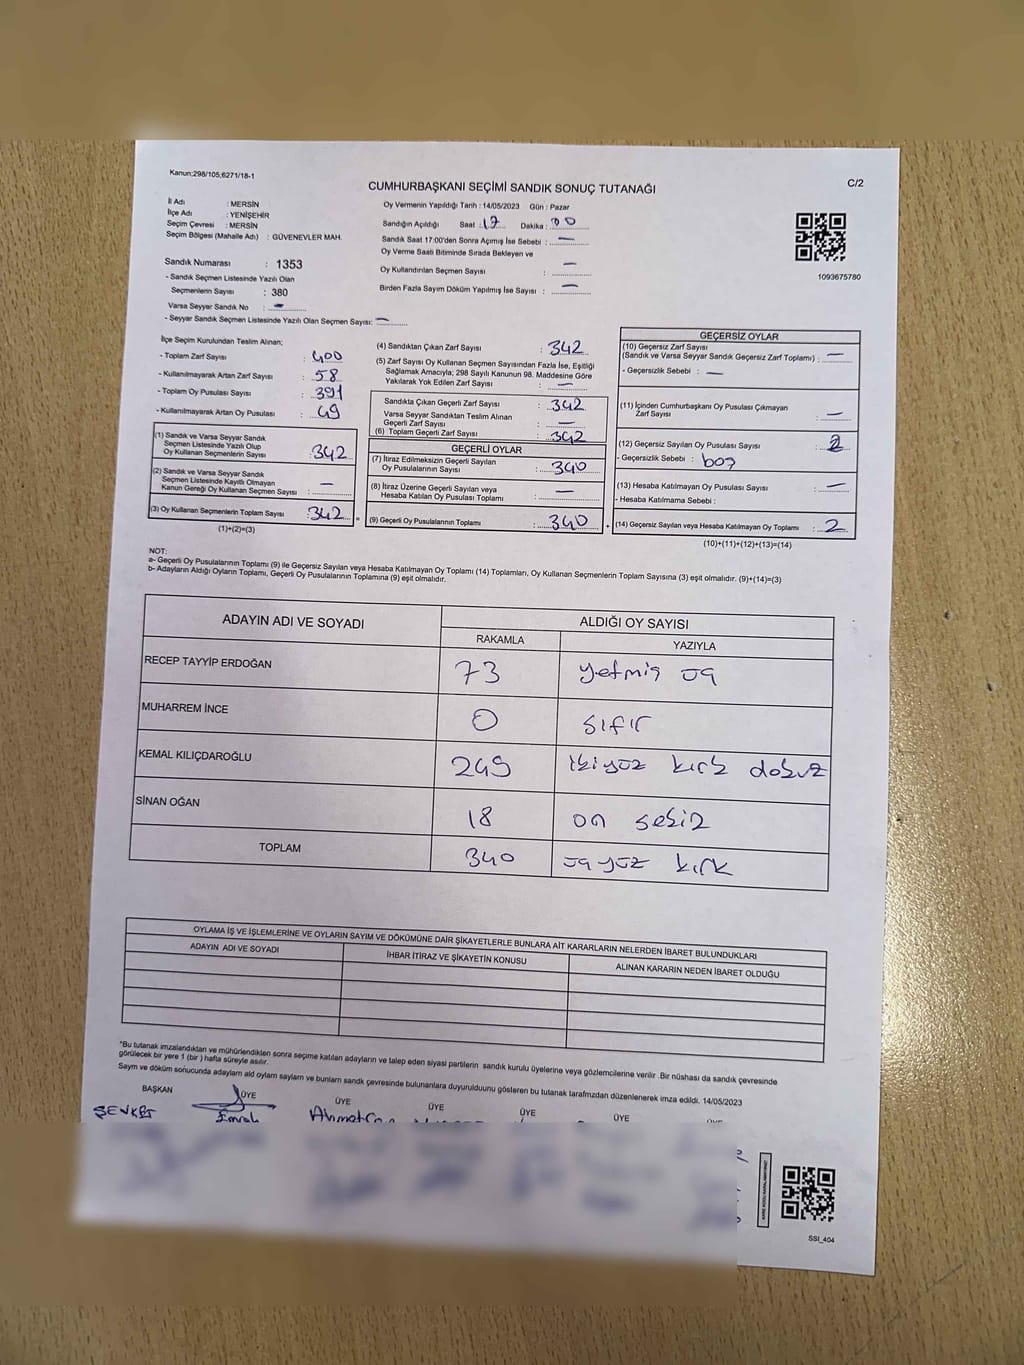 Kanun;298/105;6271/18-1
CUMHURBAŞKANI SEÇİMİ SANDIK SONUÇ TUTANAĞI
C/2
İl Adı : MERSİN
İlçe Adı : YENİŞEHİR
Seçim Çevresi : MERSİN
Seçim Bölgesi (Mahalle Adı) : GÜVENEVLER MAH.
Sandık Numarası : 1353
- Sandık Seçmen Listesinde Yazılı Olan
Seçmenlerin Sayısı : 380
Varsa Seyyar Sandık No : -
- Seyyar Sandık Seçmen Listesinde Yazılı Olan Seçmen Sayısı: -
Oy Vermenin Yapıldığı Tarih : 14/05/2023 Gün : Pazar
Sandığın Açıldığı Saat : 17 Dakika : 00
Sandık Saat 17:00'den Sonra Açımış İse Sebebi : -
Oy Verme Saati Bitiminde Sırada Bekleyen ve
Oy Kullandırılan Seçmen Sayısı : -
Birden Fazla Sayım Döküm Yapılmış İse Sayısı : -
1093675780
İlçe Seçim Kurulundan Teslim Alınan;
- Toplam Zarf Sayısı : 400
- Kullanılmayarak Artan Zarf Sayısı : 58
- Toplam Oy Pusulası Sayısı : 391
- Kullanılmayarak Artan Oy Pusulası : 49
(1) Sandık ve Varsa Seyyar Sandık
Seçmen Listesinde Yazılı Olup
Oy Kullanan Seçmenlerin Sayısı : 342
(2) Sandık ve Varsa Seyyar Sandık
Seçmen Listesinde Kayıtlı Olmayan
Kanun Gereği Oy Kullanan Seçmen Sayısı : -
(3) Oy Kullanan Seçmenlerin Toplam Sayısı : 342
(1)+(2)=(3)
(4) Sandıktan Çıkan Zarf Sayısı : 342
(5) Zarf Sayısı Oy Kullanan Seçmen Sayısından Fazla İse, Eşitliği
Sağlamak Amacıyla; 298 Sayılı Kanunun 98. Maddesine Göre
Yakılarak Yok Edilen Zarf Sayısı : -
Sandıkta Çıkan Geçerli Zarf Sayısı : 342
Varsa Seyyar Sandıktan Teslim Alınan
Geçerli Zarf Sayısı : -
(6) Toplam Geçerli Zarf Sayısı : 342
GEÇERLİ OYLAR
(7) İtiraz Edilmeksizin Geçerli Sayılan
Oy Pusulalarının Sayısı : 340
(8) İtiraz Üzerine Geçerli Sayılan veya
Hesaba Katılan Oy Pusulası Toplamı : -
= (9) Geçerli Oy Pusulalarının Toplamı : 340
GEÇERSİZ OYLAR
(10) Geçersiz Zarf Sayısı
(Sandık ve Varsa Seyyar Sandık Geçersiz Zarf Toplamı) : -
- Geçersizlik Sebebi : -
(11) İçinden Cumhurbaşkanı Oy Pusulası Çıkmayan
Zarf Sayısı : -
(12) Geçersiz Sayılan Oy Pusulası Sayısı : 2
- Geçersizlik Sebebi : boş
(13) Hesaba Katılmayan Oy Pusulası Sayısı : -
- Hesaba Katılmama Sebebi :
+ (14) Geçersiz Sayılan veya Hesaba Katılmayan Oy Toplamı : 2
(10)+(11)+(12)+(13)=(14)
NOT:
a- Geçerli Oy Pusulalarının Toplamı (9) ile Geçersiz Sayılan veya Hesaba Katılmayan Oy Toplamı (14) Toplamları, Oy Kullanan Seçmenlerin Toplam Sayısına (3) eşit olmalıdır. (9)+(14)=(3)
b- Adayların Aldığı Oyların Toplamı, Geçerli Oy Pusulalarının Toplamına (9) eşit olmalıdır.
ADAYIN ADI VE SOYADI ALDIĞI OY SAYISI
RAKAMLA YAZIYLA
RECEP TAYYİP ERDOĞAN 73 yetmiş üç
MUHARREM İNCE 0 sıfır
KEMAL KILIÇDAROĞLU 249 ikiyüz kırk dokuz
SİNAN OĞAN 18 on sekiz
TOPLAM 340 üçyüz kırk
OYLAMA İŞ VE İŞLEMLERİNE VE OYLARIN SAYIM VE DÖKÜMÜNE DAİR ŞİKAYETLERLE BUNLARA AİT KARARLARIN NELERDEN İBARET BULUNDUKLARI
ADAYIN ADI VE SOYADI İHBAR İTİRAZ VE ŞİKAYETİN KONUSU ALINAN KARARIN NEDEN İBARET OLDUĞU
*Bu tutanak imzalandıktan ve mühürlendikten sonra seçime katılan adayların ve talep eden siyasi partilerin sandık kurulu üyelerine veya gözlemcilerine verilir .Bir nüshası da sandık çevresinde
görülecek bir yere 1 (bir ) hafta süreyle asılır.
Sayım ve döküm sonucunda adayların aldı oyların sayların ve bunların sandık çevresinde bulunanlara duyurulduunu gösteren bu tutanak tarafmızdan düzenlenerek imza edildi. 14/05/2023
BAŞKAN ÜYE ÜYE ÜYE ÜYE ÜYE
ŞEVKET Emrah Ahmetcan
SSI_404